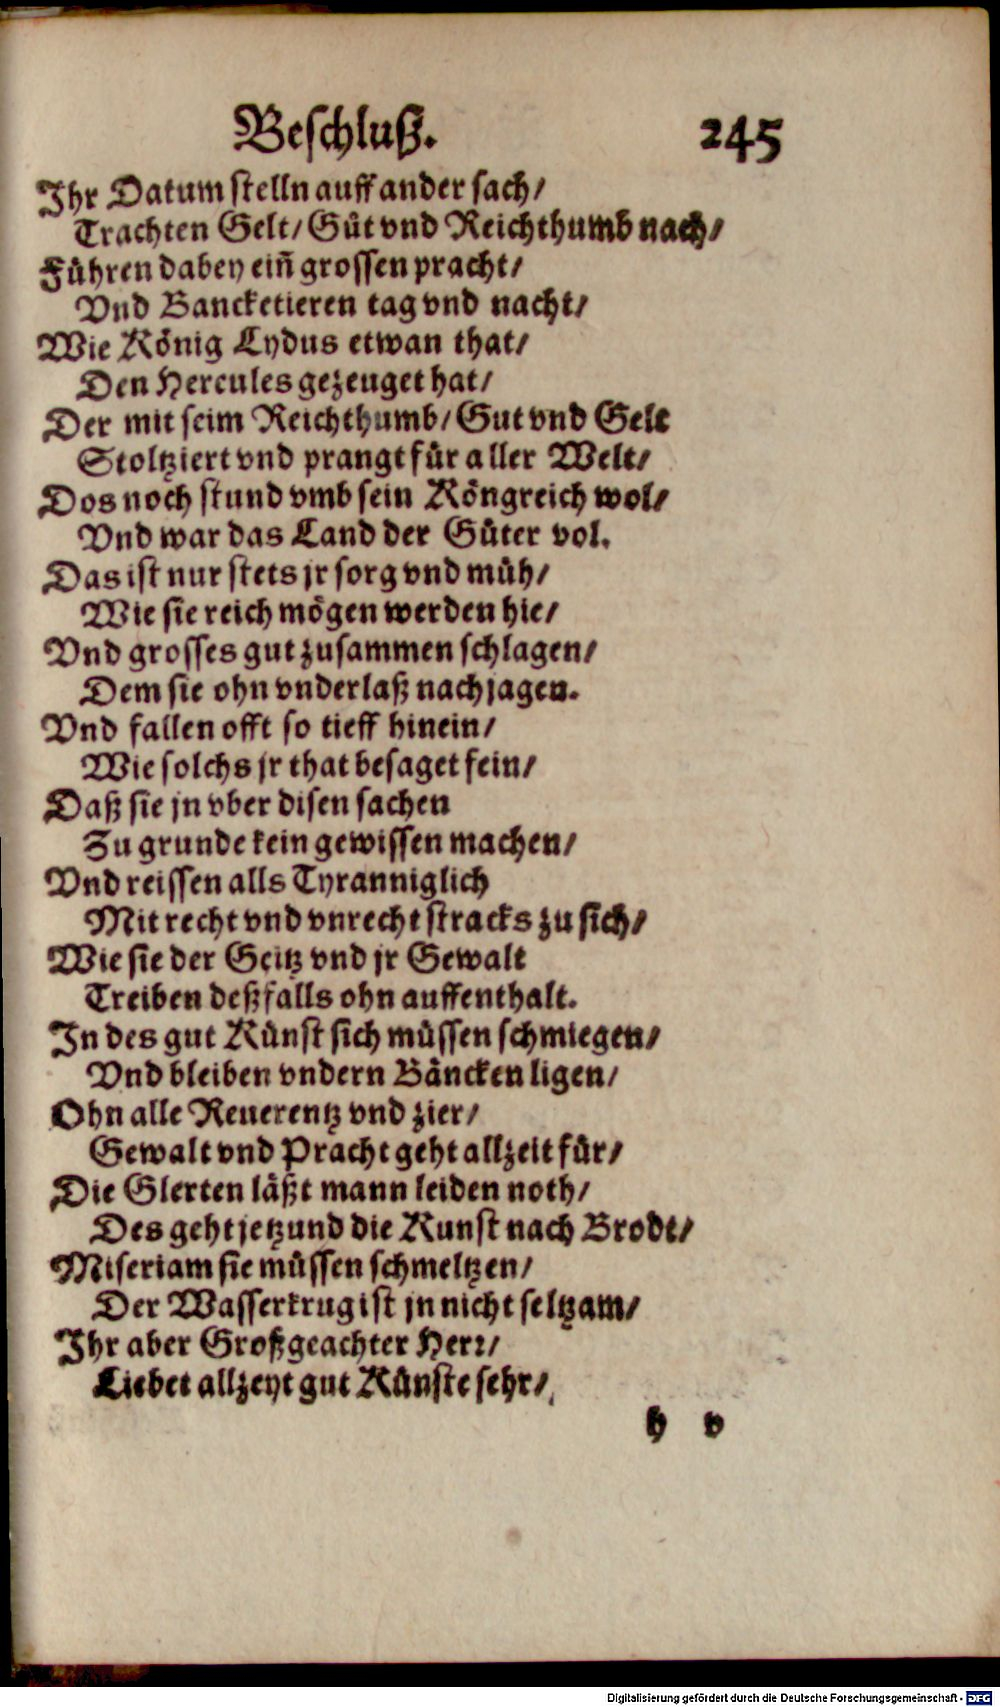 Beschluß. 245
Ihr Datum stelln auff ander sach/
Trachten Gelt/ Gůt vnd Reichthumb nach/
Führen dabey eiñ grossen pracht/
Vnd Bancketieren tag vnd nacht/
Wie König Lydus etwan that/
Den Hercules gezeuget hat/
Der mit seim Reichthumb/ Gut vnd Gelt
Stoltziert vnd prangt für aller Welt/
Dos noch stund vmb sein Köngreich wol/
Vnd war das Land der Güter vol.
Das ist nur stets jr sorg vnd müh/
Wie sie reich mögen werden hie/
Vnd grosses gut zusammen schlagen/
Dem sie ohn vnderlaß nachjagen.
Vnd fallen offt so tieff hinein/
Wie solchs jr that besaget fein/
Daß sie jn vber disen sachen
Zu grunde kein gewissen machen/
Vnd reissen alls Tyranniglich
Mit recht vnd vnrecht stracks zu sich/
Wie sie der Geitz vnd jr Gewalt
Treiben deßfalls ohn auffenthalt.
In des gut Künst sich müssen schmiegen/
Vnd bleiben vndern Bäncken ligen/
Ohn alle Reuerentz vnd zier/
Gewalt vnd Pracht geht allzeit für/
Die Glerten läßt mann leiden noth/
Des geht jetzund die Kunst nach Brodt/
Miseriam sie müssen schmeltzen/
Der Wasserkrug ist jn nicht seltzam/
Ihr aber Großgeachter Herr/
Liebet allzeyt gut Künste sehr/
h v
Digitalisierung gefördert durch die Deutsche Forschungsgemeinschaft - DFG